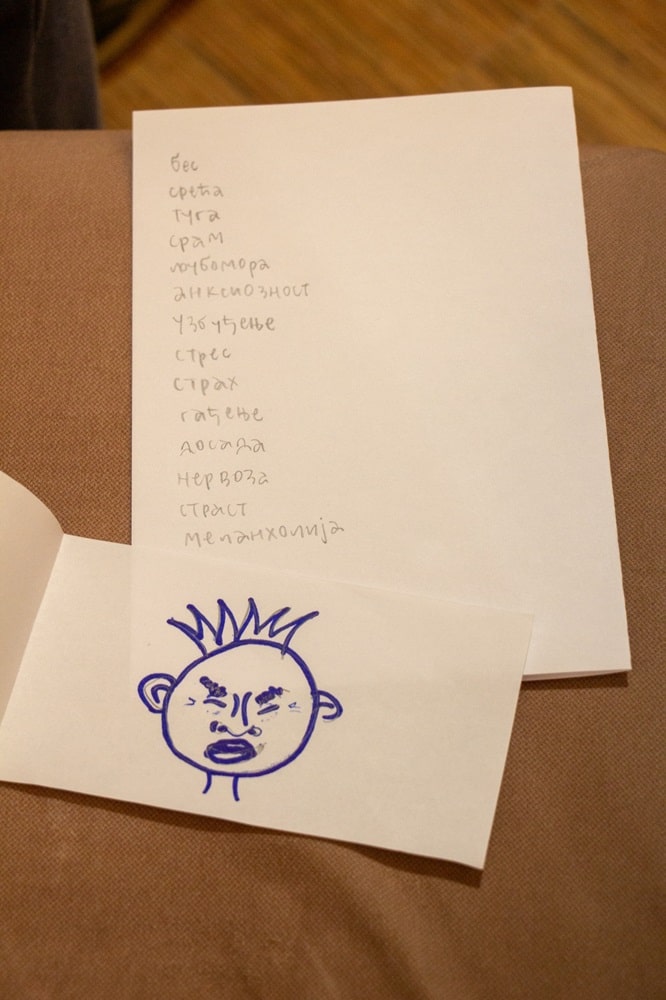 бес
срећа
туга
срам
љубомора
анксиозност
узбуђење
стрес
страх
гађење
досада
нервоза
страст
меланхолија